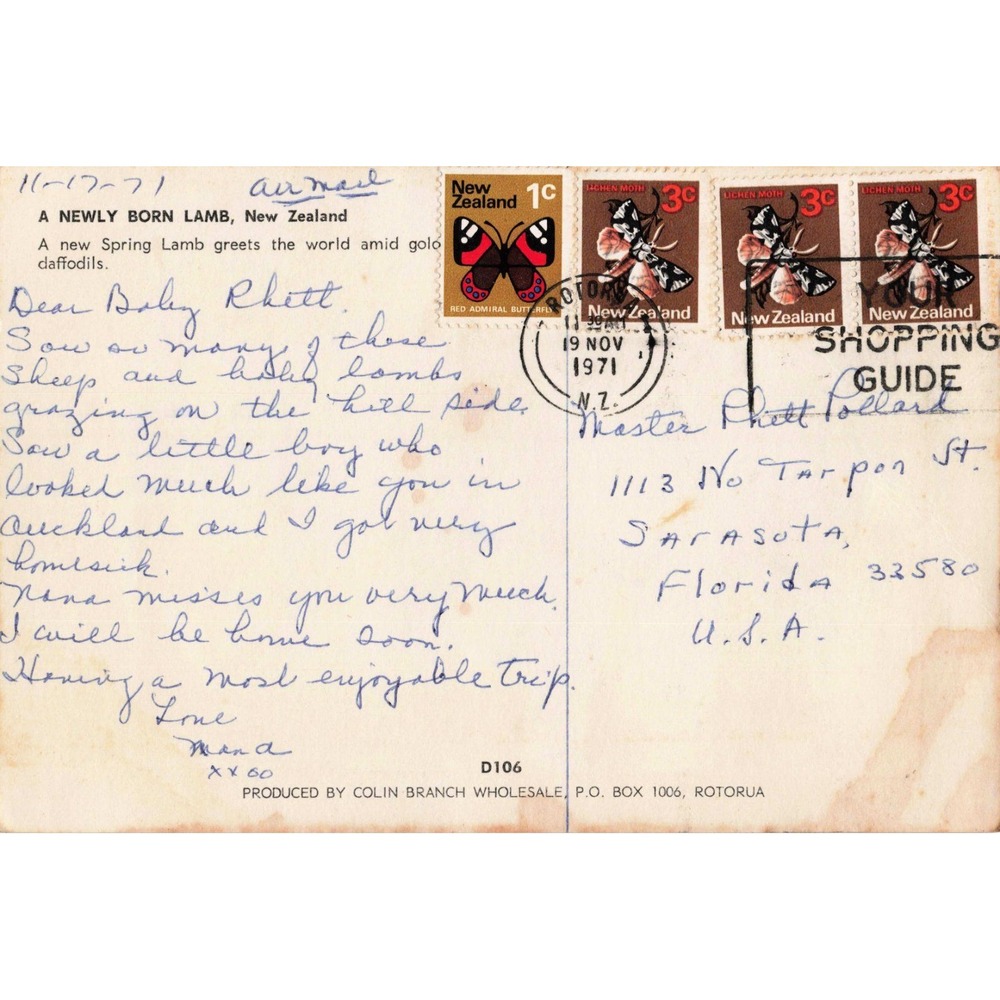 11-17-71 air mail
A NEWLY BORN LAMB, New Zealand
A new Spring Lamb greets the world amid gold
daffodils.
Dear Baby Rhett.
Saw so many of these
sheep and baby lambs
grazing on the hill side.
Saw a little boy who
looked much like you in
Auckland and I got very
homesick.
Nana misses you very much.
I will be home soon.
Having a most enjoyable trip.
Love
Nana
xx oo
New Zealand 1c
RED ADMIRAL BUTTERFLY
LICHEN MOTH 3c
New Zealand
LICHEN MOTH 3c
New Zealand
LICHEN MOTH 3c
New Zealand
ROTORUA
19 NOV
1971
N.Z.
YOUR
SHOPPING
GUIDE
Master Rhett Pollard
1113 No Tarpon St.
Sarasota,
Florida 33580
U.S.A.
D106
PRODUCED BY COLIN BRANCH WHOLESALE, P.O. BOX 1006, ROTORUA